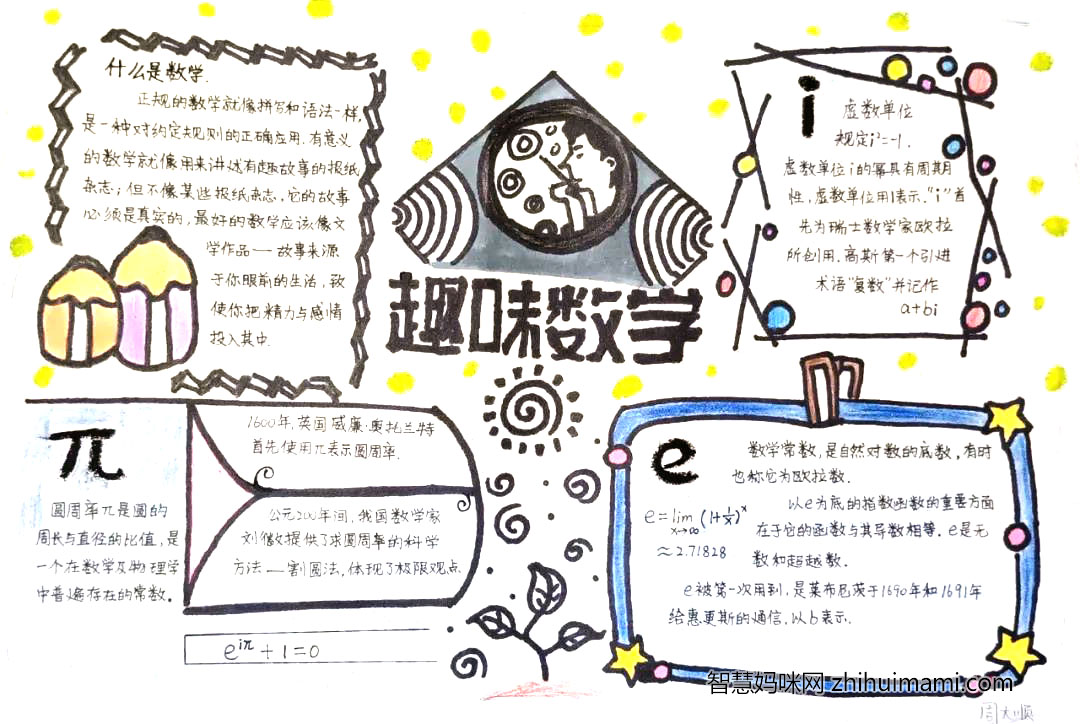 什么是数学.
正规的数学就像拼写和语法一样,
是一种对约定规则的正确应用.有意义
的数学就像用来讲述有趣故事的报纸
杂志;但不像某些报纸杂志,它的故事
必须是真实的,最好的数学应该像文
学作品——故事来源
于你眼前的生活,致
使你把精力与感情
投入其中.
趣味数学
i
虚数单位
规定i²=-1.
虚数单位i的幂具有周期
性,虚数单位用i表示."i"首
先为瑞士数学家欧拉
所创用.高斯第一个引进
术语"复数"并记作
a+bi
π
圆周率π是圆的
周长与直径的比值,是
一个在数学及物理学
中普遍存在的常数.
1600年,英国威廉·奥托兰特
首先使用π表示圆周率.
公元200年间,我国数学家
刘徽提供了求圆周率的科学
方法——割圆法,体现了极限观点
e^{iπ}+1=0
e
数学常数,是自然对数的底数,有时
也称它为欧拉数.
e=lim(1+1/x)^x
x→∞
≈2.71828
以e为底的指数函数的重要方面
在于它的函数与其导数相等.e是无
数和超越数.
e被第一次用到,是莱布尼茨于1690年和1691年
给惠更斯的通信,以b表示.
智慧妈咪网 zhihuimami.com